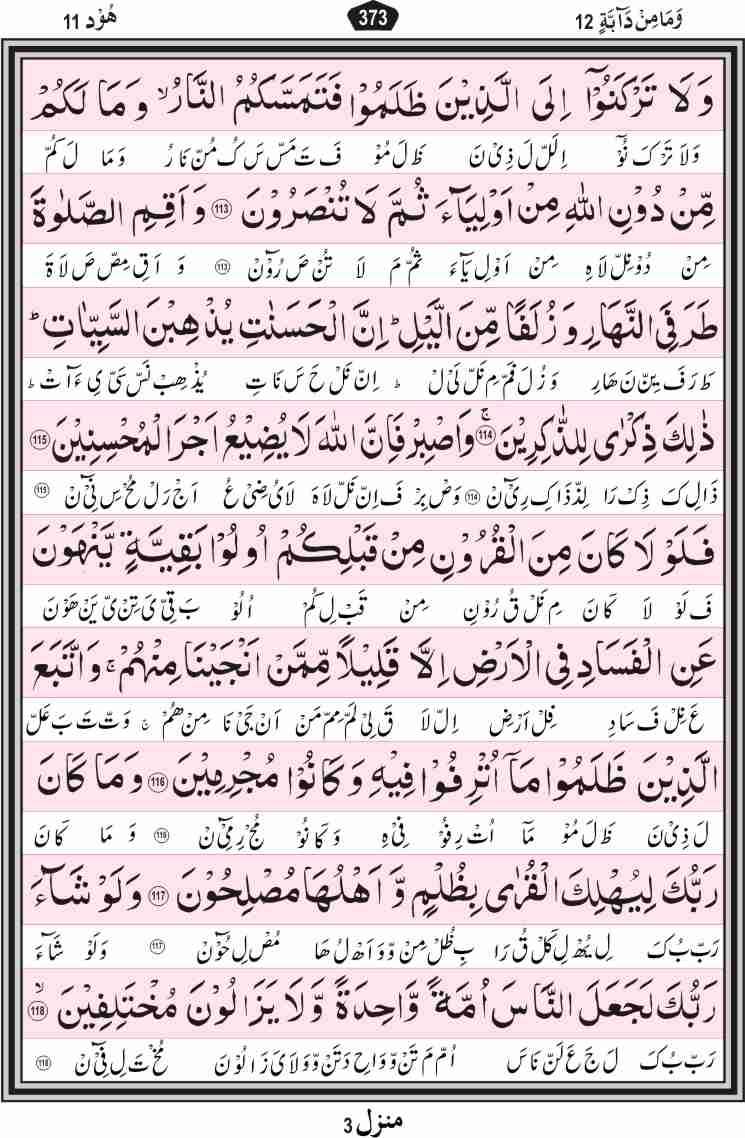 وَمَا مِنْ دَآبَّةٍ 12 373 هُوْد 11
وَلَا تَرْكَنُوْٓا اِلَى الَّذِيْنَ ظَلَمُوْا فَتَمَسَّكُمُ النَّارُ ۙ وَمَا لَكُمْ
وَلَا تَرْ كَ نُوْٓ اِلَلّ لَ ذِىْ نَ ظَ لَ مُوْ فَ تَ مَسّ سَ كُ مُنّ نَا رُ وَ مَا لَ كُمْ
مِّنْ دُوْنِ اللّٰهِ مِنْ اَوْلِيَآءَ ثُمَّ لَا تُنْصَرُوْنَ 113 وَاَقِمِ الصَّلٰوةَ
مِنْ دُوْنِلّ لَا هِ مِنْ اَوْ لِ يَآ ءَ ثُمّ مَ لَا تُنْ صَ رُوْٓنْ 113 وَ اَ قِ مِصّ صَ لَا ةَ
طَرَفَىِ النَّهَارِ وَزُلَفًا مِّنَ الَّيْلِ ؕ اِنَّ الْحَسَنٰتِ يُذْهِبْنَ السَّيِّاٰتِ ؕ
طَ رَ فَ يِنّ نَ هَارِ وَ زُ لَ فَمّ مِ نَلّ لَىْ لْ ؕ اِنّ نَلْ حَ سَ نَا تِ يُذْ هِبْ نَسّ سَىّ ىِ ءَآ تْ ؕ
ذٰلِكَ ذِكْرٰى لِلذّٰكِرِيْنَ ۚ 114 وَاصْبِرْ فَاِنَّ اللّٰهَ لَا يُضِيْعُ اَجْرَ الْمُحْسِنِيْنَ 115
ذَا لِ كَ ذِكْ رَا لِذّ ذَا كِ رِىْٓ نْ 114 وَصْ بِرْ فَ اِنّ نَلّ لَا هَ لَا يُ ضِىْ عُ اَجْ رَلْ مُحْ سِ نِىْٓ نْ 115
فَلَوْ لَا كَانَ مِنَ الْقُرُوْنِ مِنْ قَبْلِكُمْ اُولُوْا بَقِيَّةٍ يَّنْهَوْنَ
فَ لَوْ لَا كَانَ مِ نَلْ قُ رُوْنِ مِنْ قَبْ لِ كُمْ اُ لُوْ بَ قِىّ ىَ تِنْىّ يَنْ هَوْنَ
عَنِ الْفَسَادِ فِى الْاَرْضِ اِلَّا قَلِيْلًا مِّمَّنْ اَنْجَيْنَا مِنْهُمْ ۚ وَاتَّبَعَ
عَ نِلْ فَ سَادِ فِلْ اَرْضِ اِلّ لَا قَ لِىْ لَمّ مِمّ مَنْ اَنْ جَىْ نَا مِنْ هُمْ ۚ وَتّ تَ بَ عَلّ
الَّذِيْنَ ظَلَمُوْا مَآ اُتْرِفُوْا فِيْهِ وَكَانُوْا مُجْرِمِيْنَ 116 وَمَا كَانَ
لَ ذِىْ نَ ظَ لَ مُوْ مَآ اُتْ رِ فُوْ فِىْ هِ وَ كَا نُوْ مُجْ رِ مِىْٓ نْ 116 وَ مَا كَانَ
رَبُّكَ لِيُهْلِكَ الْقُرٰى بِظُلْمٍ وَّاَهْلُهَا مُصْلِحُوْنَ 117 وَلَوْ شَآءَ
رَبّ بُ كَ لِ يُهْ لِ كَلْ قُ رَا بِ ظُلْ مِنْ وّ وَ اَهْ لُ هَا مُصْ لِ حُوْٓنْ 117 وَلَوْ شَآءَ
رَبُّكَ لَجَعَلَ النَّاسَ اُمَّةً وَّاحِدَةً وَّلَا يَزَالُوْنَ مُخْتَلِفِيْنَ ۙ 118
رَبّ بُ كَ لَ جَ عَ لَنّ نَاسَ اُمّ مَ تَنْ وّ وَا حِ دَ تَنْ وّ وَ لَا يَ زَا لُوْنَ مُخْ تَ لِ فِىْٓ نْ 118
منزل 3